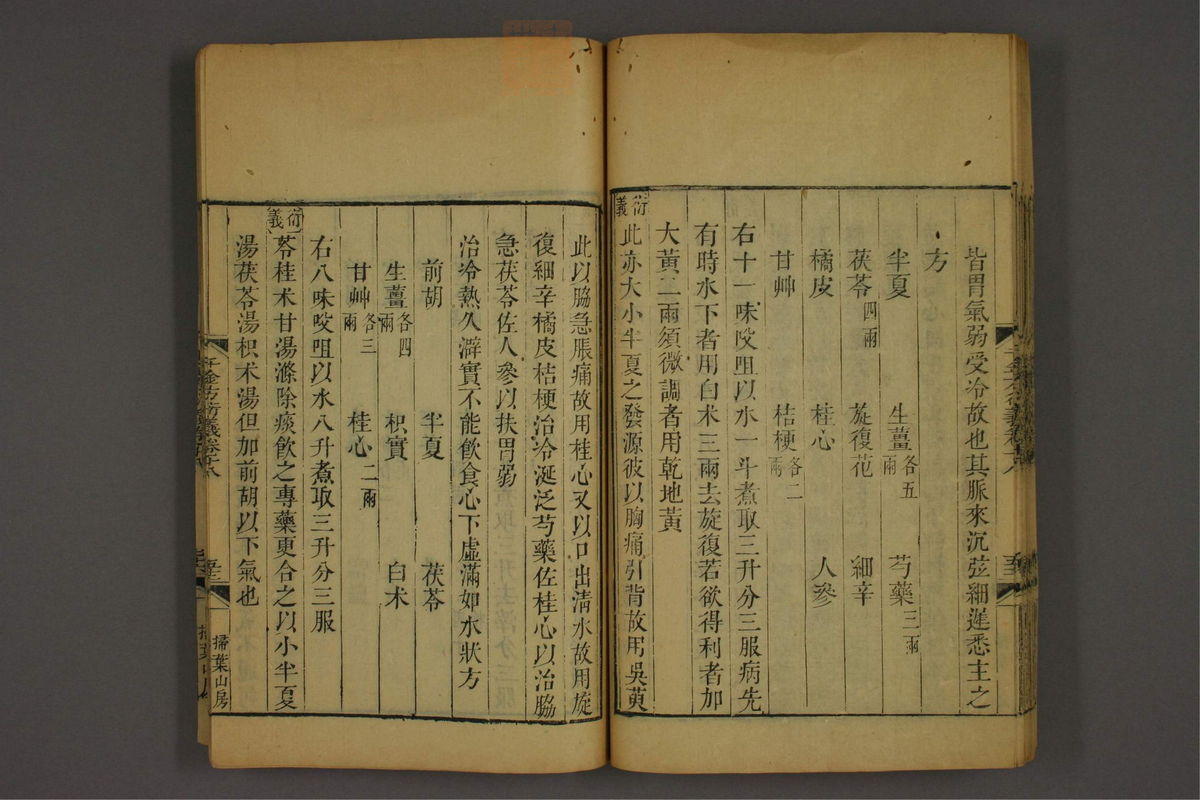 皆胃氣弱受冷故也其脈來沉弦細遲悉主之
方
半夏 生薑各五兩 芍藥三兩
茯苓四兩 旋復花 細辛
橘皮 桂心 人參
甘艸 桔梗各二兩
右十一味㕮咀以水一斗煮取三升分三服病先
有時水下者用白朮三兩去旋復若欲得利者加
大黃二兩須微調者用乾地黃
衍義
此亦大小半夏之發源彼以胸痛引背故用吳萸
此以脇急脹痛故用桂心又以口出清水故用旋
復細辛橘皮桔梗治冷涎泛芍藥佐桂心以治脇
急茯苓佐人參以扶胃弱
治冷熱久澼實不能飲食心下虛滿如水狀方
前胡 半夏 茯苓
生薑各四兩 枳實 白朮
甘艸各三兩 桂心二兩
右八味㕮咀以水八升煮取三升分三服
衍義
苓桂朮甘湯滌除痰飲之專藥更合之以小半夏
湯茯苓湯枳朮湯但加前胡以下氣也
千金方衍義卷十八
掃葉山房